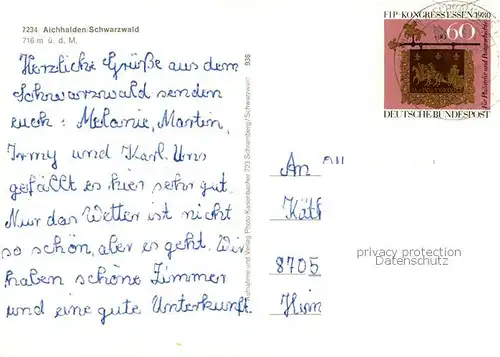 7234 Aichhalden/Schwarzwald
716 m ü. d. M.
Herzliche Grüße aus dem
Schwarzwald senden
euch: Melanie, Martin,
Irmy und Karl. Uns
gefällt es hier sehr gut.
Nur das Wetter ist nicht
so schön, aber es geht. Wir
haben schöne Zimmer
und eine gute Unterkunft.
938
Aufnahme und Verlag Photo-Kasenbacher 723 Schramberg/Schwarzwald
FIP-KONGRESS ESSEN 1980
60
Für Philatelie und Postgeschichte
DEUTSCHE BUNDESPOST
An
Käth
8705
privacy protection
Datenschutz